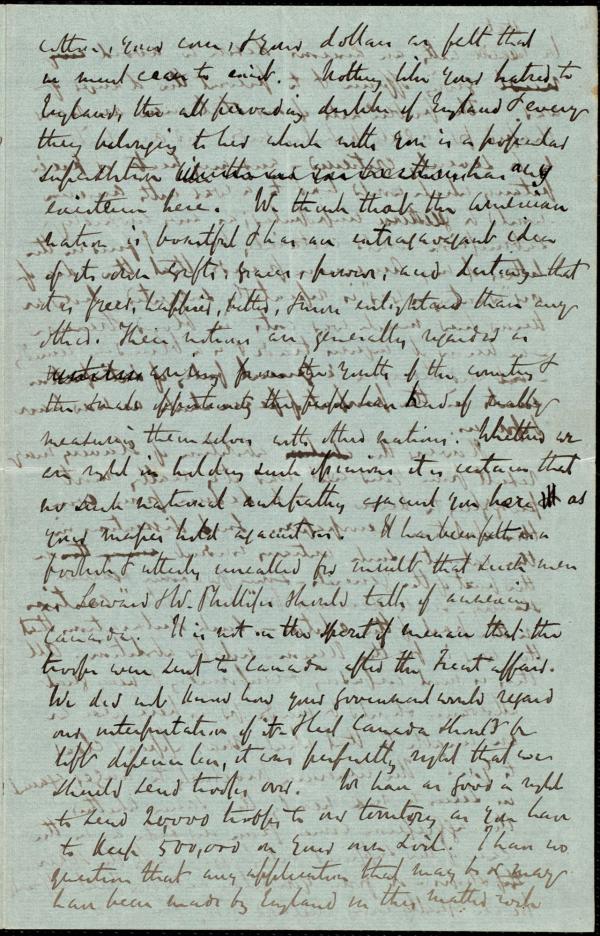 cotton, your corn, & your dollars are felt that
we must cease to exist. Nothing like your hatred to
England, the all pervading dislike of England & every
thing belonging to her which with you is a popular
superstition has any
existence here. We think that the American
nation is boastful & has an extravagant idea
of its own gifts, graces, powers, and destiny that
it is freer, happier, better, & more enlightened than any
other. Their notions are generally regarded as
arising from the youth of the country &
the small opportunity the people have had of really
measuring themselves with other nations. Whether we
are right in holding such opinions it is certain that
no such national antipathy against you here as
your masses hold against us. It has been felt as a
foolish & utterly uncalled for insult that such men
as Seward & W. Phillips should talk of annexing
Canada. It is not in the spirit of menace that the
troops were sent to Canada after the Trent affair.
We did not know how your government would regard
our interpretation of it & had Canada should be
left defenceless, it was perfectly right that we
should send troops over. We have as good a right
to send 20,000 troops to our territory as you have
to keep 500,000 on your own soil. I have no
question that any application that may be or may
have been made by England in this matter with